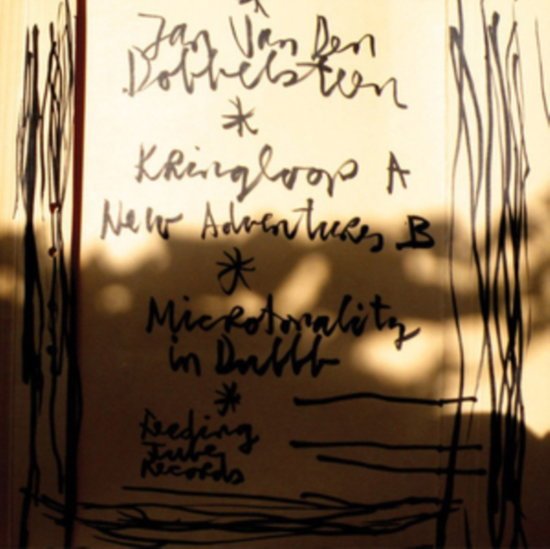 Jan Van Den
Dobbelsteen
*
Kringloop A
New Adventures B
*
Microtonality
in Dubbb
*
Feeding
Tube
Records